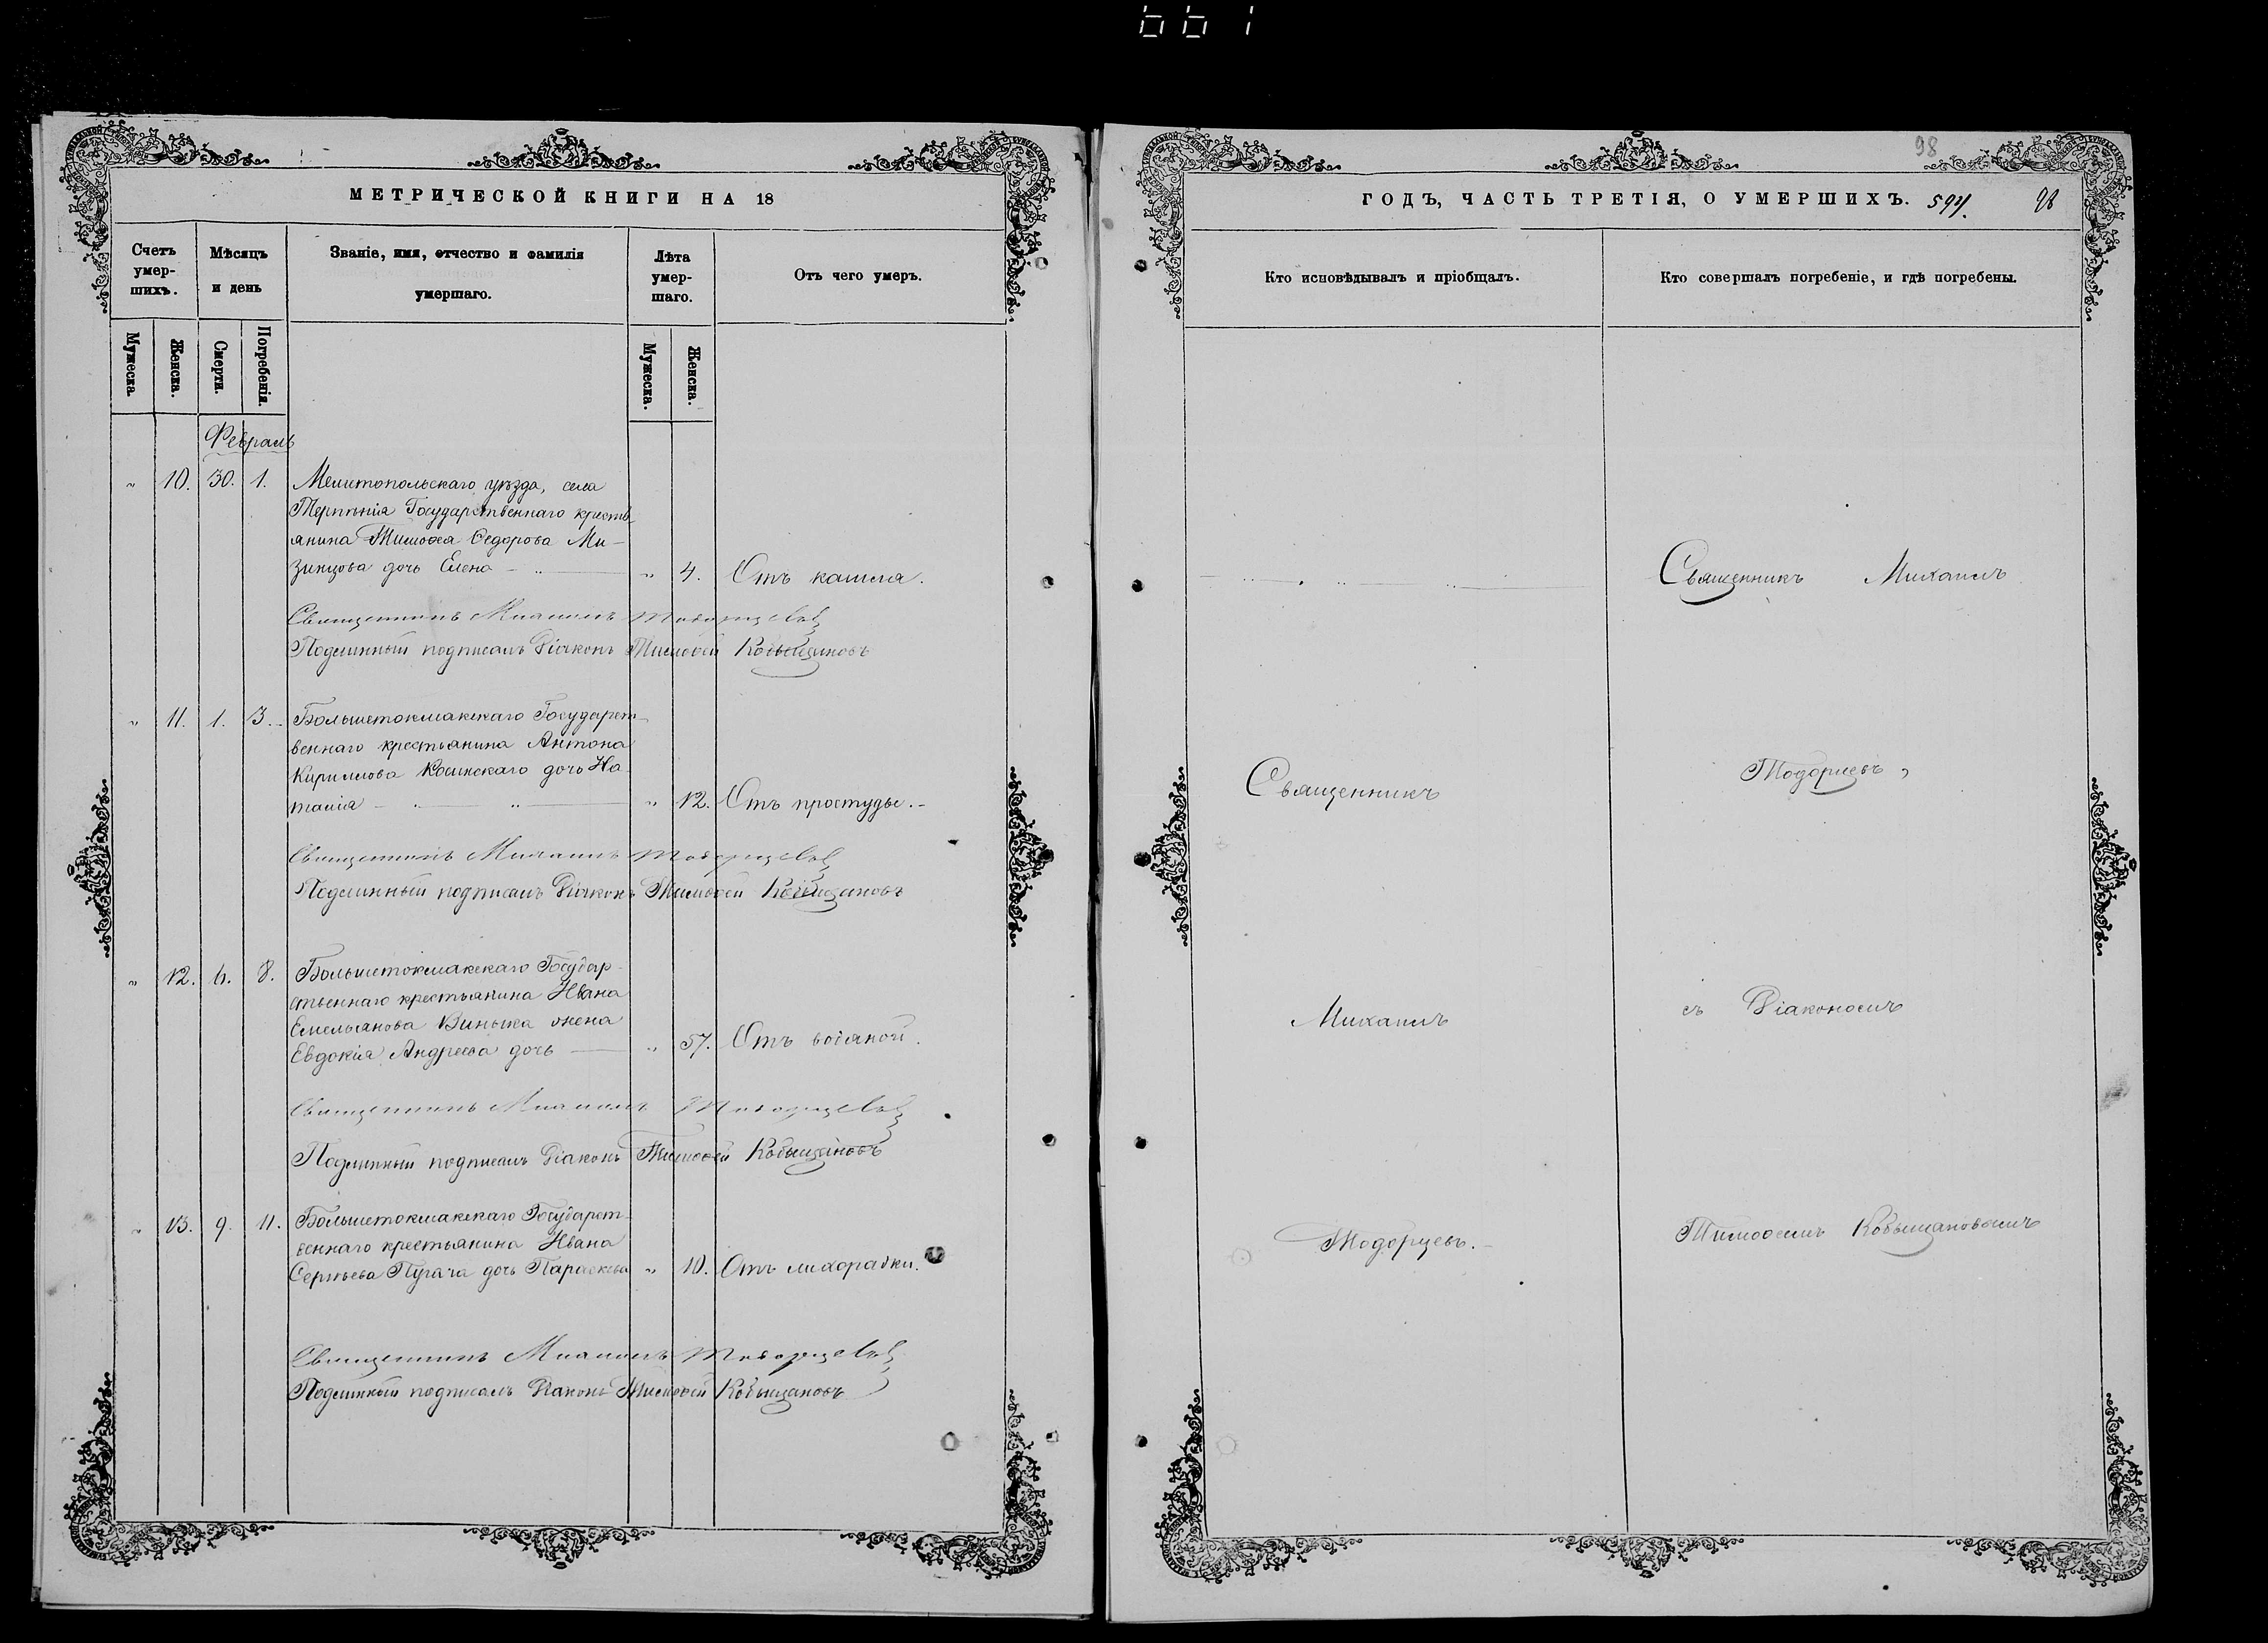 661
98
МЕТРИЧЕСКОЙ КНИГИ НА 18
ГОДЪ, ЧАСТЬ ТРЕТІЯ, О УМЕРШИХЪ. 597. 98
Счетъ умер-шихъ.
Мѣсяцъ и день
Званіе, имя, отчество и фамилія умершаго.
Лѣта умер-шаго.
Отъ чего умеръ.
Кто исповѣдывалъ и пріобщалъ.
Кто совершалъ погребеніе, и гдѣ погребены.
Мужеска.
Женска.
Смерти.
Погребенія.
Мужеска.
Женска.
Февраль
" 10. 30. 1. Мелитопольскаго уѣзда, села
Терпѣнія Государственнаго кресть-
янина Тимоѳея Ѳедорова Ми-
зинцова дочь Елена " 4. Отъ кашля.
Священникъ Михаилъ Тодорцевъ
Подлинный подписалъ Діаконъ Тимоѳей Кобыщановъ
" 11. 1. 3. Большетокмакскаго Государст-
веннаго крестьянина Антона
Кириллова Косинскаго дочь На-
талія " 12. Отъ простуды.
Священникъ Михаилъ Тодорцевъ
Подлинный подписалъ Діаконъ Тимоѳей Кобыщановъ
" 12. 6. 8. Большетокмакскаго Государ-
ственнаго крестьянина Ивана
Емельянова Винника жена
Евдокія Андреева дочь " 57. Отъ водяной.
Священникъ Михаилъ Тодорцевъ
Подлинный подписалъ Діаконъ Тимоѳей Кобыщановъ
" 13. 9. 11. Большетокмакскаго Государст-
веннаго крестьянина Ивана
Сергѣева Пугача дочь Параскева " 10. Отъ лихорадки.
Священникъ Михаилъ Тодорцевъ
Подлинный подписалъ Діаконъ Тимоѳей Кобыщановъ
Священникъ
Михаилъ
Тодорцевъ.
Священникъ Михаилъ
Тодорцевъ,
съ Діакономъ
Тимоѳеемъ Кобыщановымъ